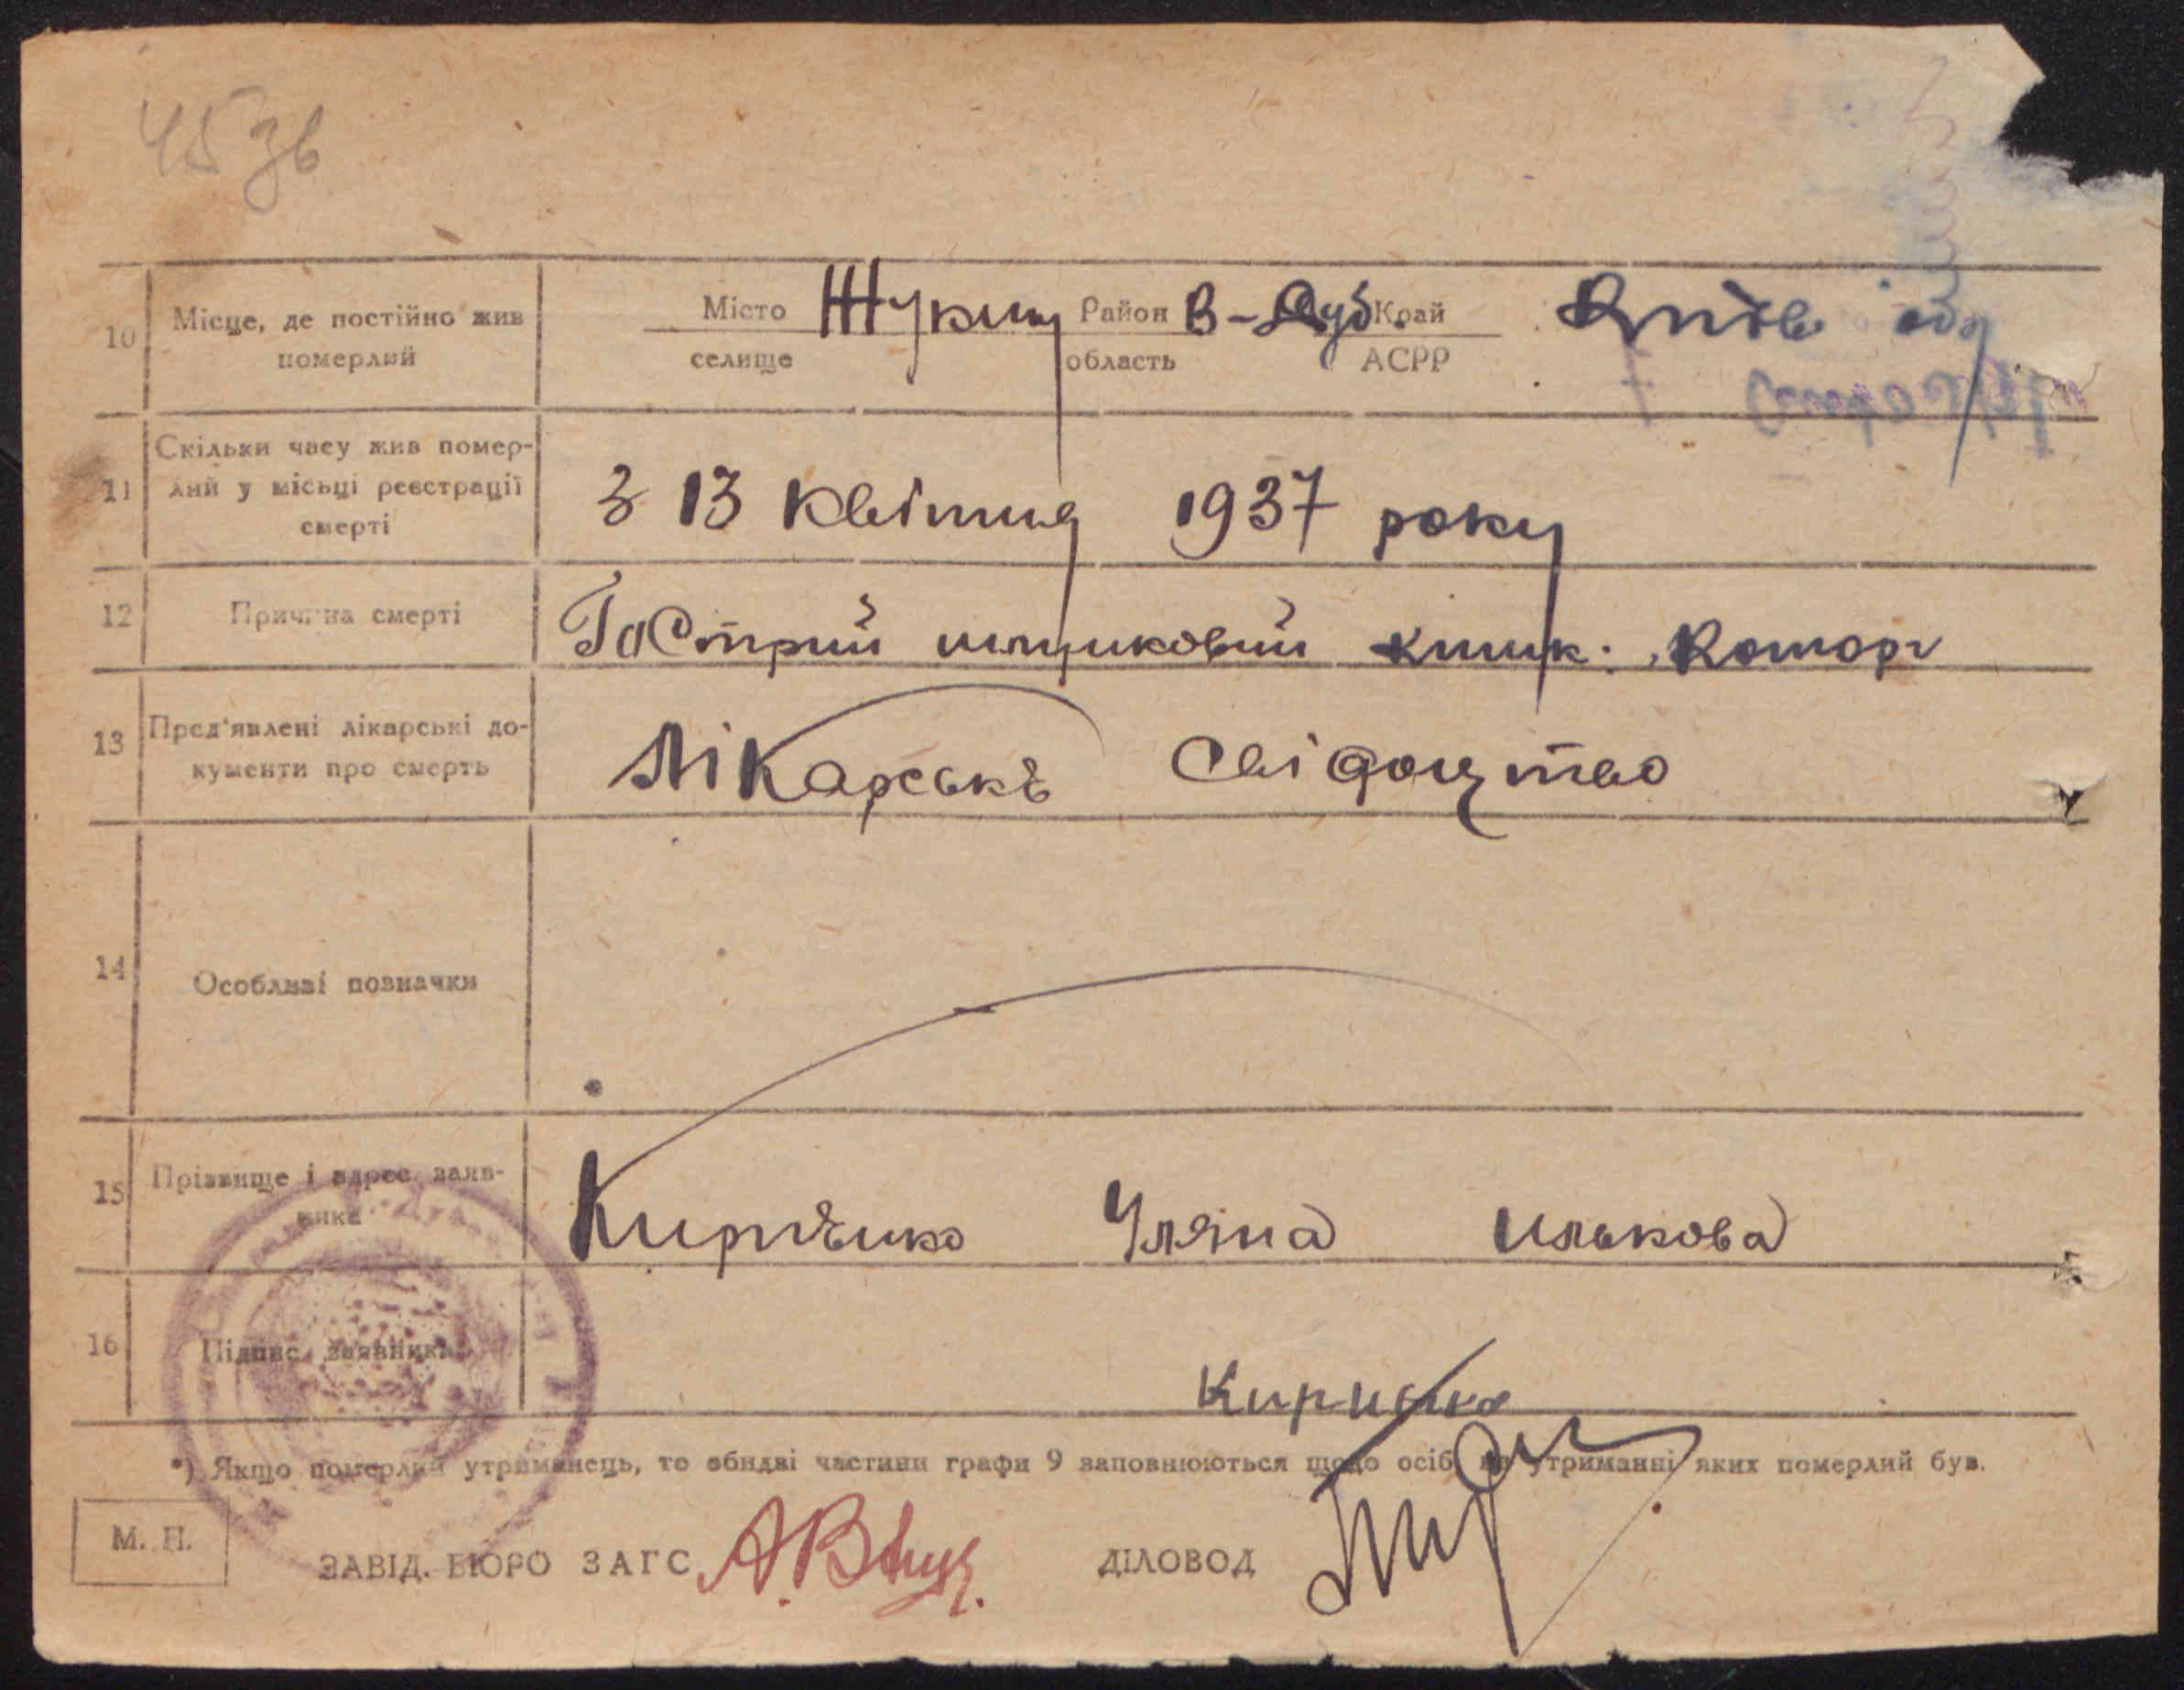 45 зв
10 Місце, де постійно жив померлий
Місто селище Жукин Район область В-Дуб. Край АСРР обл
11 Скільки часу жив помер-
лий у місьці реєстрації
смерті
З 13 Квітня 1937 року
12 Причина смерті
Гастрий шлуковий кишк.
13 Пред'явлені лікарські до-
кументи про смерть
Лікарськъ Свідоцтво
14 Особливі позначки
15 Прізвище і адрес заяв-
ника
Уляна Илькова
16 Підпис заявника
*) Якщо померлий утриманець, то обидві частини графи 9 заповнюються щодо осіб, на утриманні яких померлий був.
М. П.
ЗАВІД. БЮРО ЗАГС
ДІЛОВОД